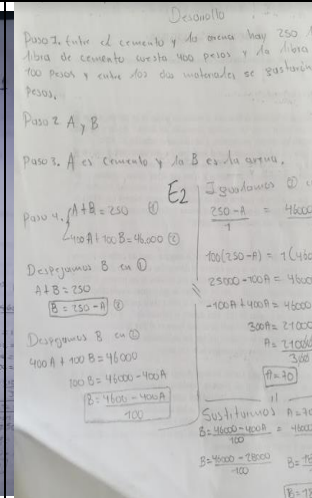 Desarrollo
Paso 1. Entre el cemento y la arena hay 250
libra de cemento cuesta 400 pesos y la libra
100 pesos y entre los dos materiales se gastarón
pesos.
Paso 2 A y B
Paso 3. A es cemento y la B es la arena.
E2
Paso 4. A+B=250 ①
400A+100B=46.000 ②
Despejamos B en ①
A+B=250
B=250-A ③
Despejamos B en ②
400A+100B=46000
100B=46000-400A
B=4600-400A
100
Igualamos ③
250-A = 46000
1
100(250-A) = 1(460
25000-100A = 4600
-100A+400A = 46000
300A=21000
A=21000
300
A=70
Sustituimos A=70
B=46000-400A =
100
B=46000-28000
100